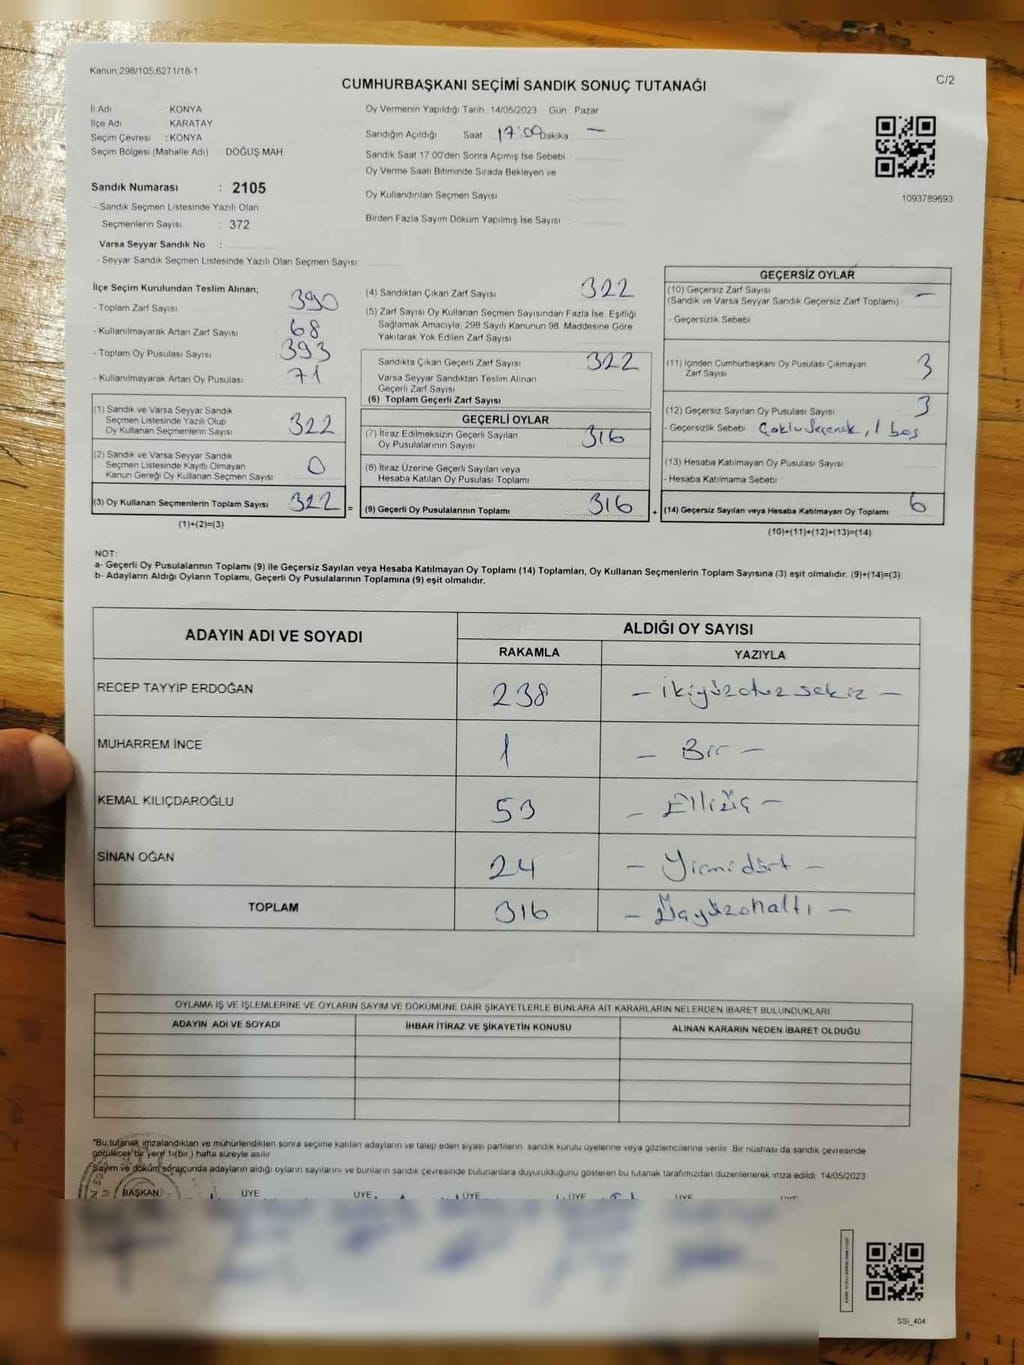 Kanun;298/105;6271/18-1
C/2
CUMHURBAŞKANI SEÇİMİ SANDIK SONUÇ TUTANAĞI
İl Adı : KONYA
İlçe Adı : KARATAY
Seçim Çevresi : KONYA
Seçim Bölgesi (Mahalle Adı) : DOĞUŞ MAH.
Sandık Numarası : 2105
- Sandık Seçmen Listesinde Yazılı Olan
Seçmenlerin Sayısı : 372
Varsa Seyyar Sandık No :
- Seyyar Sandık Seçmen Listesinde Yazılı Olan Seçmen Sayısı:
Oy Vermenin Yapıldığı Tarih :14/05/2023 Gün : Pazar
Sandığın Açıldığı Saat 17:00 Dakika —
Sandık Saat 17:00'den Sonra Açılmış İse Sebebi
Oy Verme Saati Bitiminde Sırada Bekleyen ve
Oy Kullandırılan Seçmen Sayısı
Birden Fazla Sayım Döküm Yapılmış İse Sayısı
1093789693
İlçe Seçim Kurulundan Teslim Alınan;
- Toplam Zarf Sayısı 390
- Kullanılmayarak Artan Zarf Sayısı 68
- Toplam Oy Pusulası Sayısı 393
- Kullanılmayarak Artan Oy Pusulası 71
(1) Sandık ve Varsa Seyyar Sandık
Seçmen Listesinde Yazılı Olup
Oy Kullanan Seçmenlerin Sayısı 322
(2) Sandık ve Varsa Seyyar Sandık
Seçmen Listesinde Kayıtlı Olmayan
Kanun Gereği Oy Kullanan Seçmen Sayısı 0
(3) Oy Kullanan Seçmenlerin Toplam Sayısı 322 =
(1)+(2)=(3)
(4) Sandıktan Çıkan Zarf Sayısı 322
(5) Zarf Sayısı Oy Kullanan Seçmen Sayısından Fazla İse, Eşitliği
Sağlamak Amacıyla, 298 Sayılı Kanunun 98. Maddesine Göre
Yakılarak Yok Edilen Zarf Sayısı
Sandıkta Çıkan Geçerli Zarf Sayısı 322
Varsa Seyyar Sandıktan Teslim Alınan
Geçerli Zarf Sayısı
(6) Toplam Geçerli Zarf Sayısı
GEÇERLİ OYLAR
(7) İtiraz Edilmeksizin Geçerli Sayılan
Oy Pusulalarının Sayısı 316
(8) İtiraz Üzerine Geçerli Sayılan veya
Hesaba Katılan Oy Pusulası Toplamı
(9) Geçerli Oy Pusulalarının Toplamı 316 +
GEÇERSİZ OYLAR
(10) Geçersiz Zarf Sayısı —
(Sandık ve Varsa Seyyar Sandık Geçersiz Zarf Toplamı)
- Geçersizlik Sebebi :
(11) İçinden Cumhurbaşkanı Oy Pusulası Çıkmayan
Zarf Sayısı 3
(12) Geçersiz Sayılan Oy Pusulası Sayısı 3
- Geçersizlik Sebebi Çoklu Seçenek, 1 boş
(13) Hesaba Katılmayan Oy Pusulası Sayısı
- Hesaba Katılmama Sebebi :
(14) Geçersiz Sayılan veya Hesaba Katılmayan Oy Toplamı 6
(10)+(11)+(12)+(13)=(14)
NOT:
a- Geçerli Oy Pusulalarının Toplamı (9) ile Geçersiz Sayılan veya Hesaba Katılmayan Oy Toplamı (14) Toplamları, Oy Kullanan Seçmenlerin Toplam Sayısına (3) eşit olmalıdır. (9)+(14)=(3)
b- Adayların Aldığı Oyların Toplamı, Geçerli Oy Pusulalarının Toplamına (9) eşit olmalıdır.
ADAYIN ADI VE SOYADI ALDIĞI OY SAYISI
RAKAMLA YAZIYLA
RECEP TAYYİP ERDOĞAN 238 — ikiyüzotuzsekiz —
MUHARREM İNCE 1 — Bir —
KEMAL KILIÇDAROĞLU 53 — Elliüç —
SİNAN OĞAN 24 — Yirmidört —
TOPLAM 316 — Üçyüzonaltı —
OYLAMA İŞ VE İŞLEMLERİNE VE OYLARIN SAYIM VE DÖKÜMÜNE DAİR ŞİKAYETLERLE BUNLARA AİT KARARLARIN NELERDEN İBARET BULUNDUKLARI
ADAYIN ADI VE SOYADI İHBAR İTİRAZ VE ŞİKAYETİN KONUSU ALINAN KARARIN NEDEN İBARET OLDUĞU
*Bu tutanak imzalandıktan ve mühürlendikten sonra seçime katılan adayların ve talep eden siyasi partilerin sandık kurulu üyelerine veya gözlemcilerine verilir. Bir nüshası da sandık çevresinde
görülecek bir yere 1 (bir ) hafta süreyle asılır
Sayım ve döküm sonucunda adayların aldığı oyların sayılarını ve bunların sandık çevresinde bulunanlara duyurulduğunu gösteren bu tutanak tarafımızdan düzenlenerek imza edildi. 14/05/2023
BAŞKAN ÜYE ÜYE ÜYE ÜYE ÜYE ÜYE
SSI_404